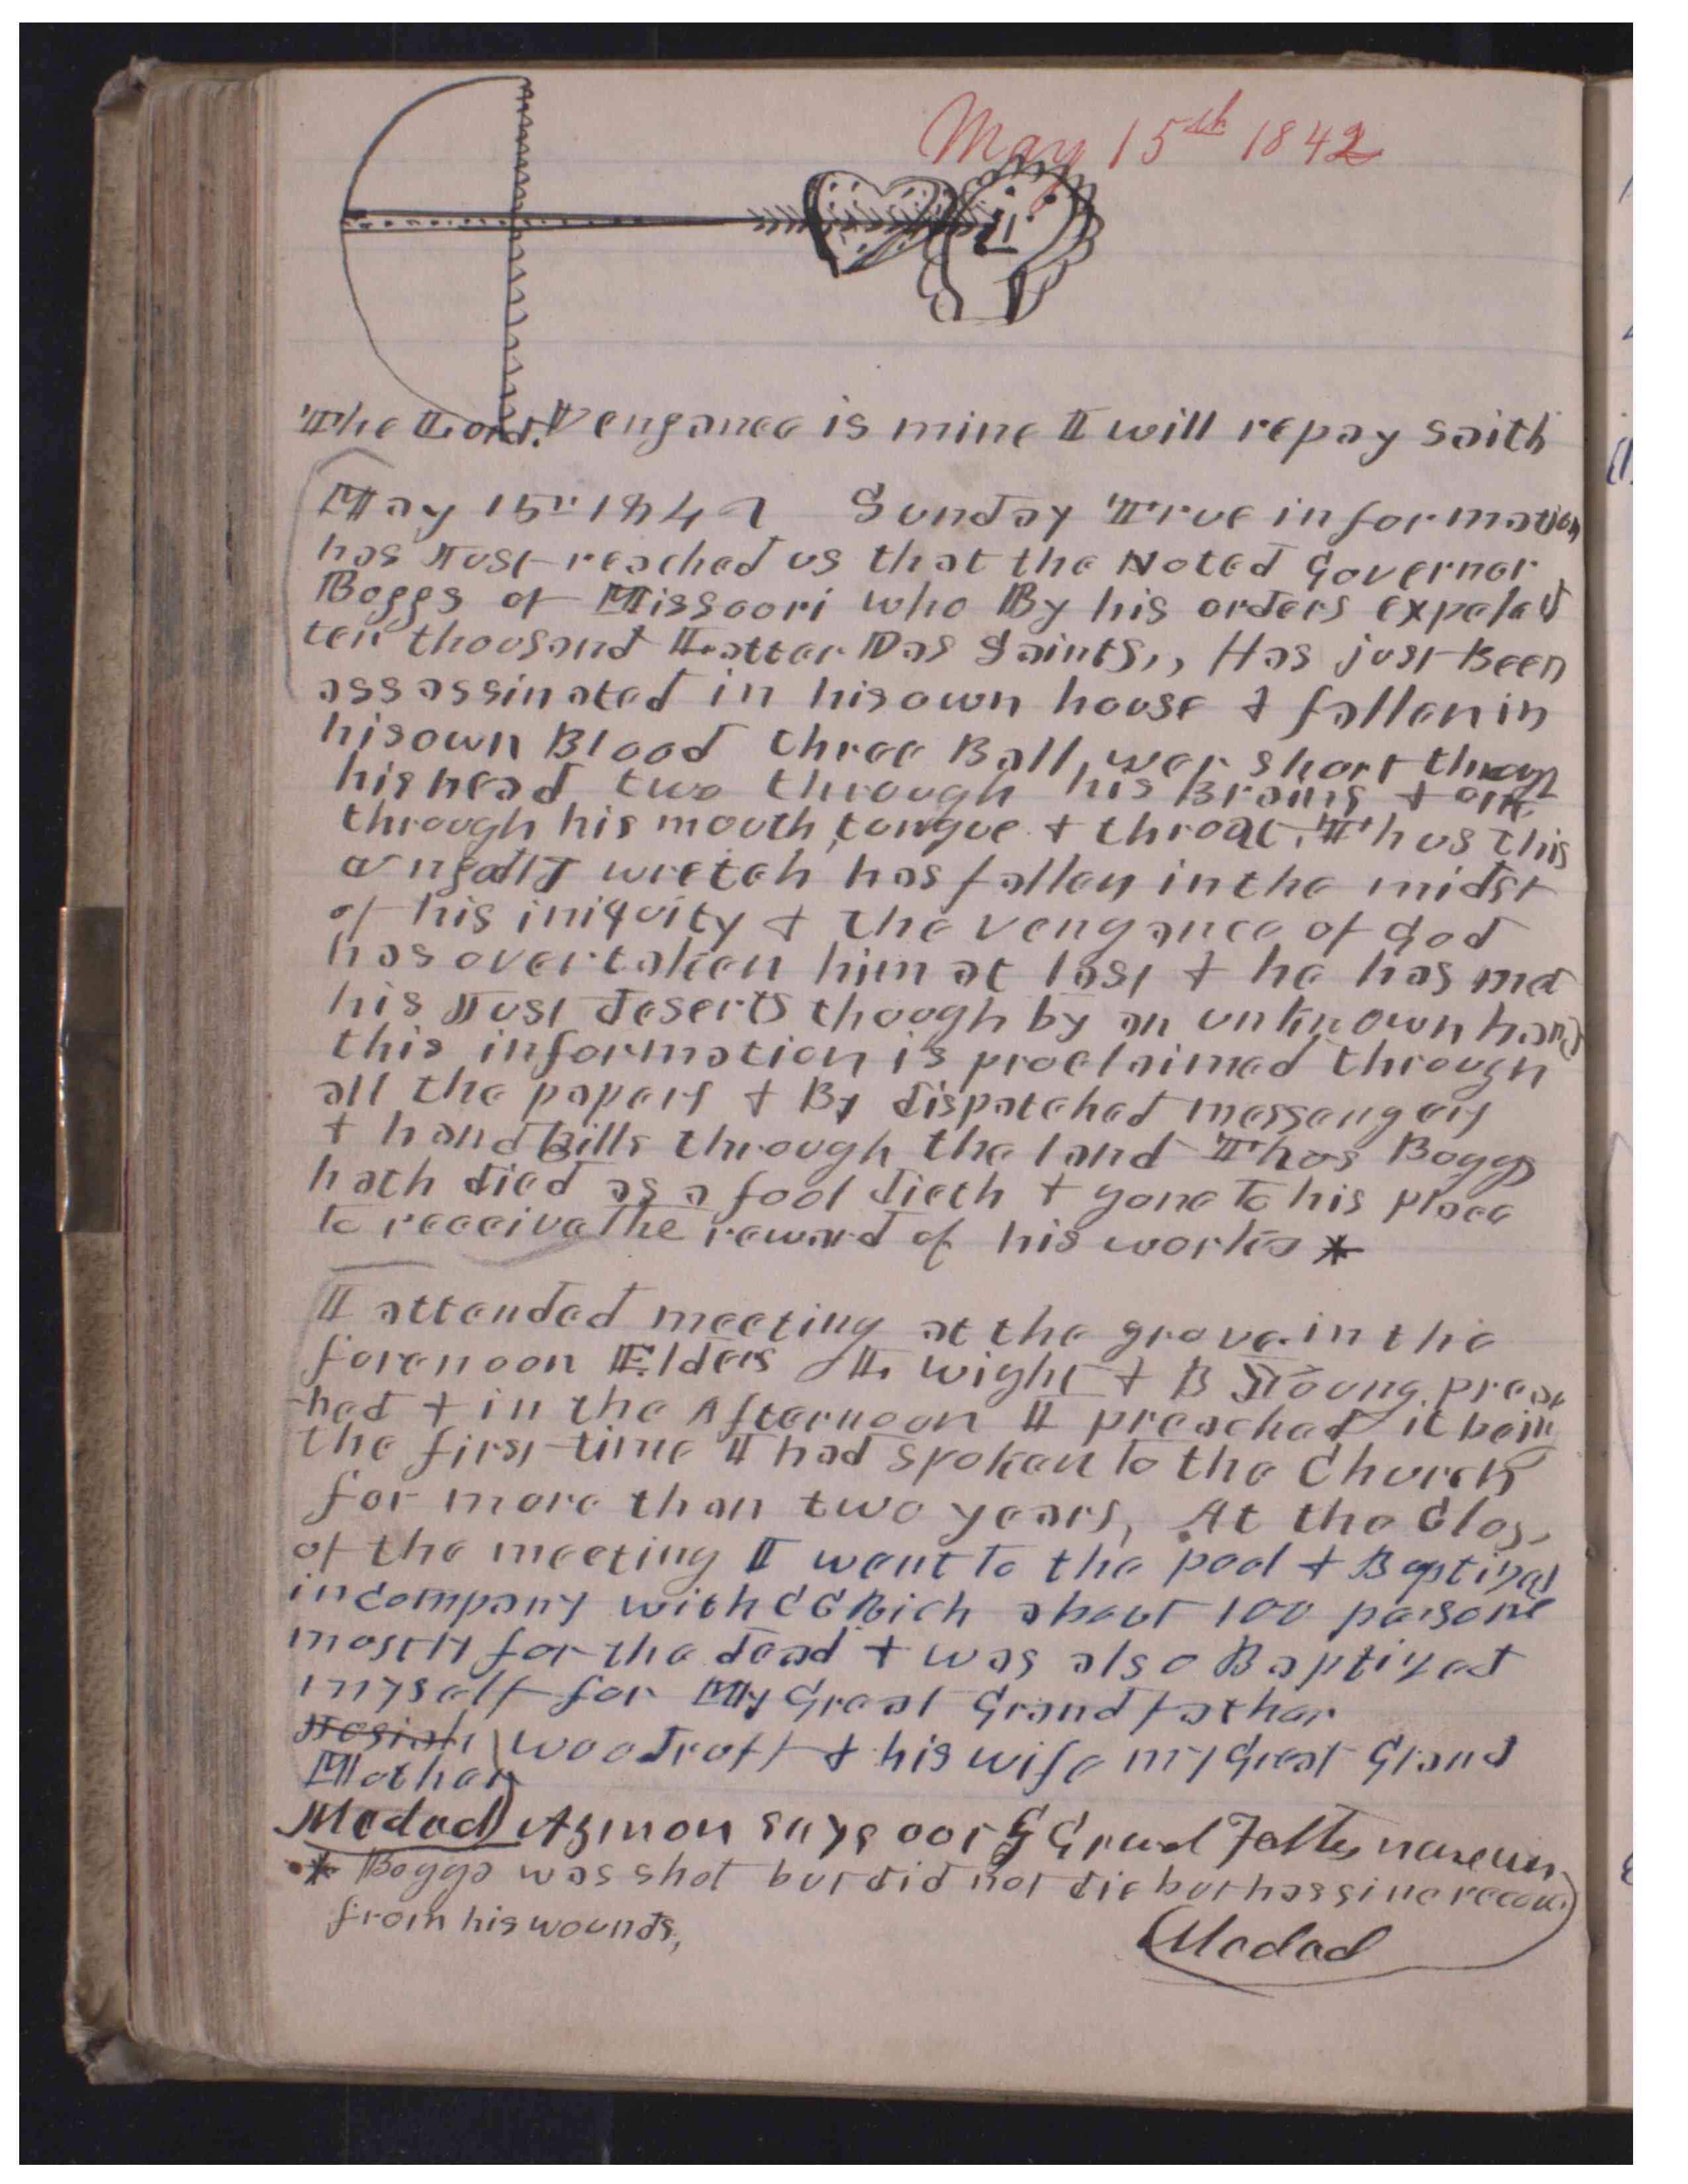 May 15th 1842
The Lord. Vengance is mine I will repay saith
May 15th 1842 Sunday True information
has Just reached us that the Noted Governor
Boggs of Missouri who By his orders expeled
ten thousand Latter Das Saints,, Has just Been
assassinated in his own house & fallen in
his own Blood three Ball, wer short through
his head two through his Brains & one
through his mouth, tongue & throat. Thus this
ungodly wretch has fallen in the midst
of his iniquity & the vengance of God
has overtaken him at last & he has met
his Just deserts though by an unknown hand
this information is proclaimed through
all the papers & By dispatched messengers
& hand bills through the land Thus Boggs
hath died as a fool dieth & gone to his place
to receive the reward of his works *
I attended meeting at the grove in the
forenoon Elders L. wight & B Young preac
-hed & in the Afternoon I preached it being
the first time I had spoken to the Church
for more than two years, At the Clos,
of the meeting I went to the pool & Baptized
in company with C C Rich about 100 persons
mostly for the dead & was also Baptized
myself for My Great Grandfather
Josiah Woodruff & his wife my Great Grand
Mother
Medad) Azmon says our G Grand Father name was
* Boggs was shot but did not die but has since recov.
from his wounds,
(Medad